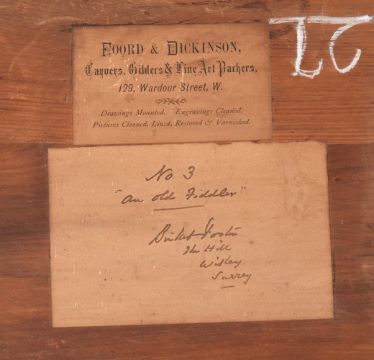 FOORD & DICKINSON,
Carvers, Gilders & Fine Art Packers,
129, Wardour Street, W.
Drawings Mounted. Engravings Cleaned.
Pictures Cleaned, Lined, Restored & Varnished.
No 3
"An old Fiddler"
Birket Foster
The Hill
Witley
Surrey